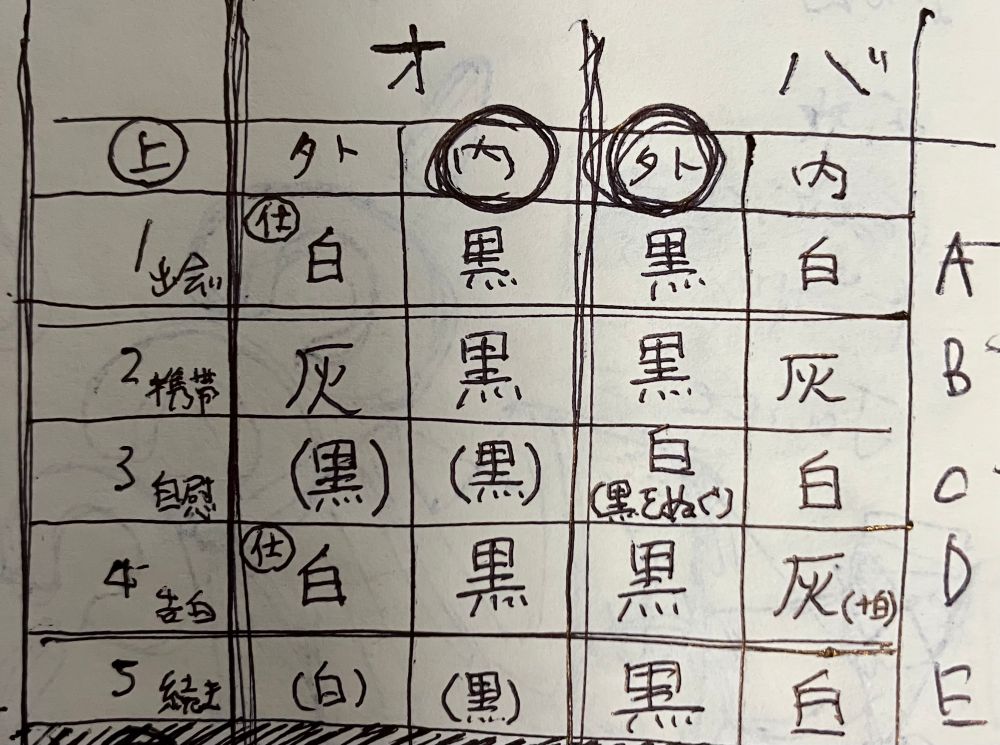 オ バ
上 外 内 外 内
1 出会い 仕 白 黒 黒 白 A
2 携帯 灰 黒 黒 灰 B
3 自慰 (黒) (黒) 白 (黒をぬぐ) 白 C
4 告白 仕 白 黒 黒 灰 (+白) D
5 続き (白) (黒) 黒 白 E